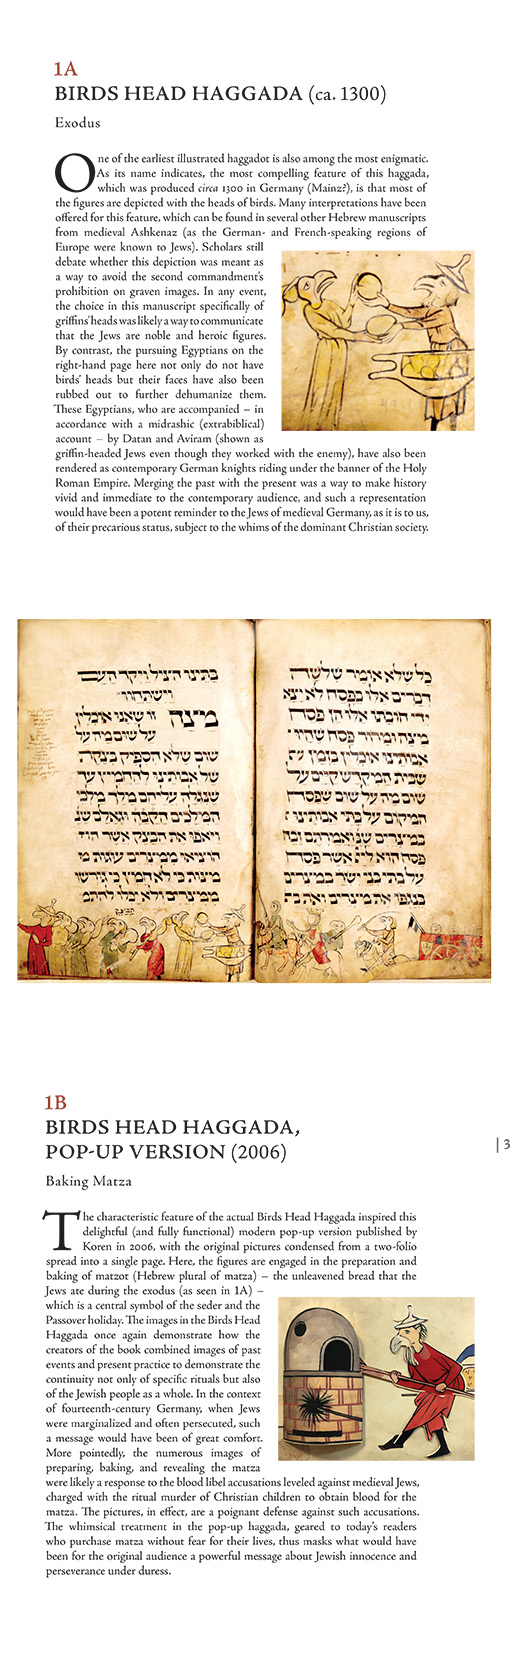 1A
BIRDS HEAD HAGGADA (ca. 1300)
Exodus
One of the earliest illustrated haggadot is also among the most enigmatic.
As its name indicates, the most compelling feature of this haggada,
which was produced circa 1300 in Germany (Mainz?), is that most of
the figures are depicted with the heads of birds. Many interpretations have been
offered for this feature, which can be found in several other Hebrew manuscripts
from medieval Ashkenaz (as the German- and French-speaking regions of
Europe were known to Jews). Scholars still
debate whether this depiction was meant as
a way to avoid the second commandment's
prohibition on graven images. In any event,
the choice in this manuscript specifically of
griffins' heads was likely a way to communicate
that the Jews are noble and heroic figures.
By contrast, the pursuing Egyptians on the
right-hand page here not only do not have
birds' heads but their faces have also been
rubbed out to further dehumanize them.
These Egyptians, who are accompanied – in
accordance with a midrashic (extrabiblical)
account – by Datan and Aviram (shown as
griffin-headed Jews even though they worked with the enemy), have also been
rendered as contemporary German knights riding under the banner of the Holy
Roman Empire. Merging the past with the present was a way to make history
vivid and immediate to the contemporary audience, and such a representation
would have been a potent reminder to the Jews of medieval Germany, as it is to us,
of their precarious status, subject to the whims of the dominant Christian society.
כל שלא אומר שלשה
דברים אלו בפסח לא יצא
ידי חובתו אלו הן פסח
מצה ומרור פסח שהיו
אבותינו אוכלים בזמן
שבית המקדש קיים על
שום מה על שום שפסח
המקום על בתי אבותינו
במצרים שנ ואמרתם זבח
פסח הוא אשר פסח
על בתי בני ישר במצרים
בנגפו את מצרים ואת
בתינו הציל ויקד העם
וישתחוו
מצה זו שאנו אוכלין
על שום מה על
שום שלא הספיק בצקה
של אבותינו להחמיץ עד
שנגלה עליהם מלך מלכי
המלכים הקבה וגאלם שנ
ויאפו את הבצק אשר
הוציאו ממצרים עוגות
מצות כי לא חמץ כי גורשו
ממצרים ולא יכלו
1B
BIRDS HEAD HAGGADA,
POP-UP VERSION (2006)
| 3
Baking Matza
The characteristic feature of the actual Birds Head Haggada inspired this
delightful (and fully functional) modern pop-up version published by
Koren in 2006, with the original pictures condensed from a two-folio
spread into a single page. Here, the figures are engaged in the preparation and
baking of matzot (Hebrew plural of matza) – the unleavened bread that the
Jews ate during the exodus (as seen in 1A) –
which is a central symbol of the seder and the
Passover holiday. The images in the Birds Head
Haggada once again demonstrate how the
creators of the book combined images of past
events and present practice to demonstrate the
continuity not only of specific rituals but also
of the Jewish people as a whole. In the context
of fourteenth-century Germany, when Jews
were marginalized and often persecuted, such
a message would have been of great comfort.
More pointedly, the numerous images of
preparing, baking, and revealing the matza
were likely a response to the blood libel accusations leveled against medieval Jews,
charged with the ritual murder of Christian children to obtain blood for the
matza. The pictures, in effect, are a poignant defense against such accusations.
The whimsical treatment in the pop-up haggada, geared to today's readers
who purchase matza without fear for their lives, thus masks what would have
been for the original audience a powerful message about Jewish innocence and
perseverance under duress.